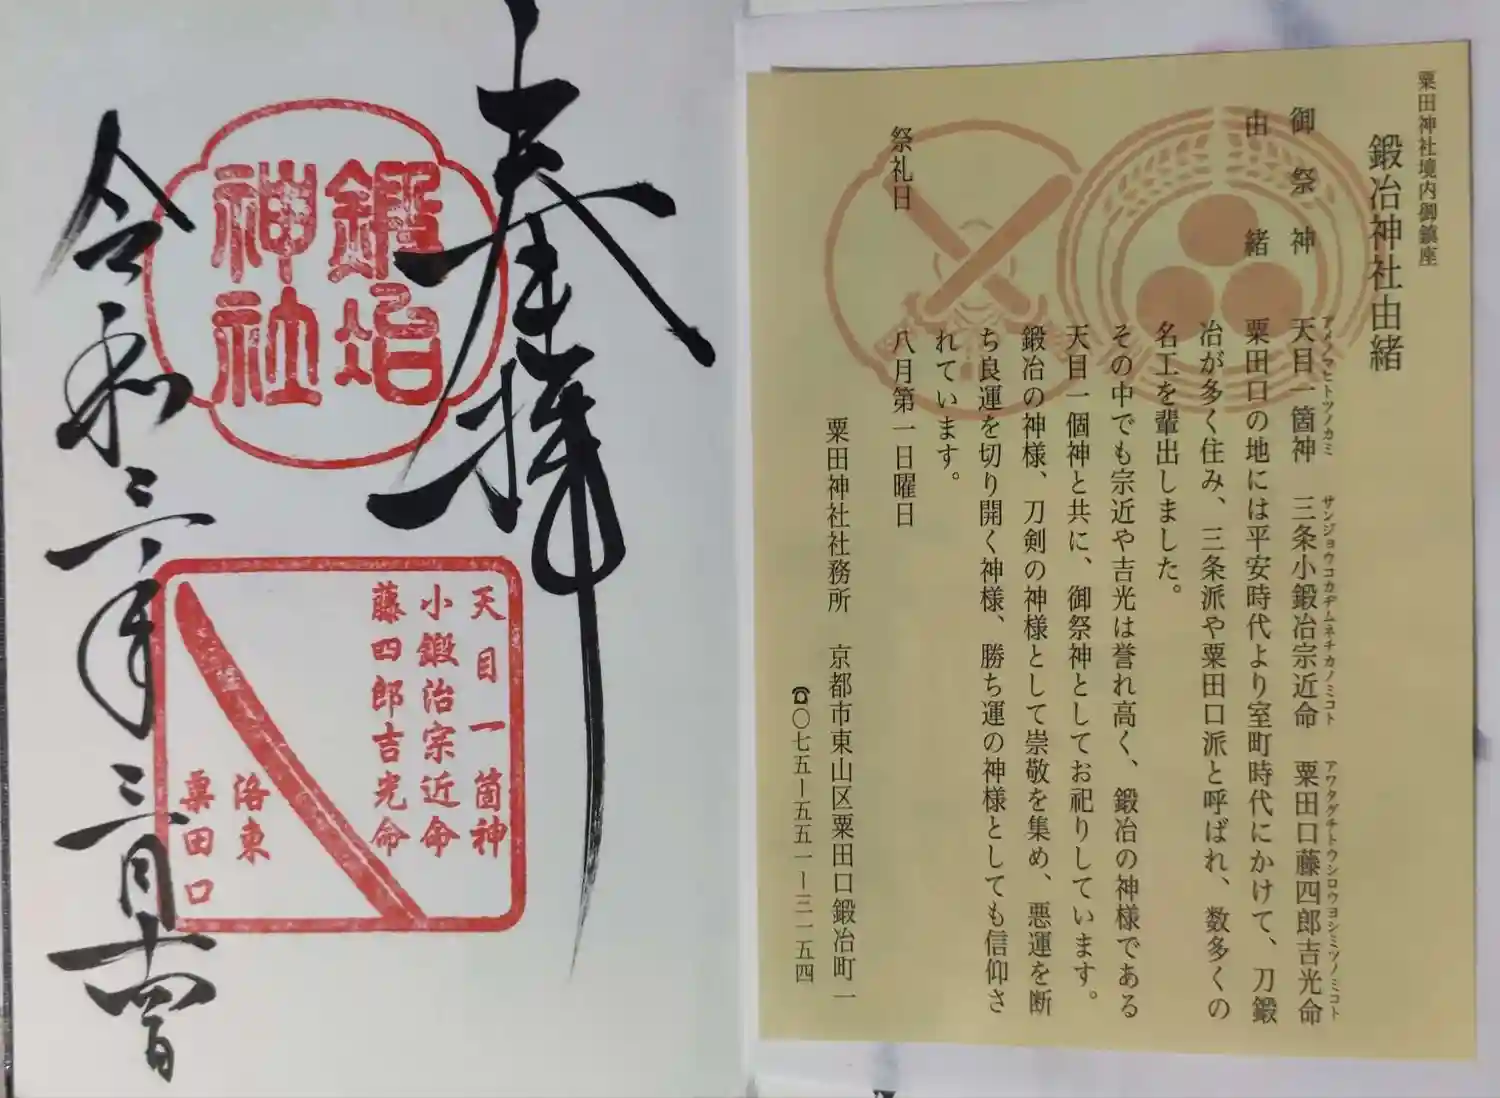 粟田神社境内御鎮座
鍛冶神社由緒
御祭神
アメノマヒトツノカミ
天目一箇神
サンジョウコカヂムネチカノミコト
三条小鍛冶宗近命
アワタグチトウシロウヨシミツノミコト
粟田口藤四郎吉光命
由緒
粟田口の地には平安時代より室町時代にかけて、刀鍛
冶が多く住み、三条派や粟田口派と呼ばれ、数多くの
名工を輩出しました。
その中でも宗近や吉光は誉れ高く、鍛冶の神様である
天目一個神と共に、御祭神としてお祀りしています。
鍛冶の神様、刀剣の神様として崇敬を集め、悪運を断
ち良運を切り開く神様、勝ち運の神様としても信仰さ
れています。
祭礼日
八月第一日曜日
粟田神社社務所 京都市東山区粟田口鍛冶町一
☎〇七五ー五五一ー三一五四
奉拝
鍛冶
神社
天目一箇神
小鍛冶宗近命
藤四郎吉光命
洛東
粟田口
令和三年三月十四日